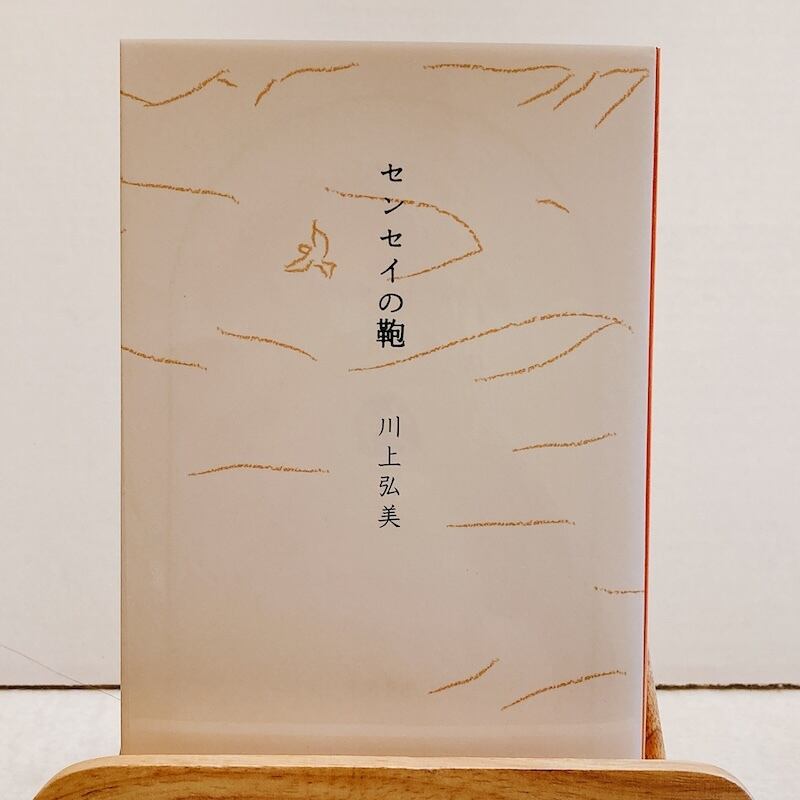 センセイの鞄
川上弘美